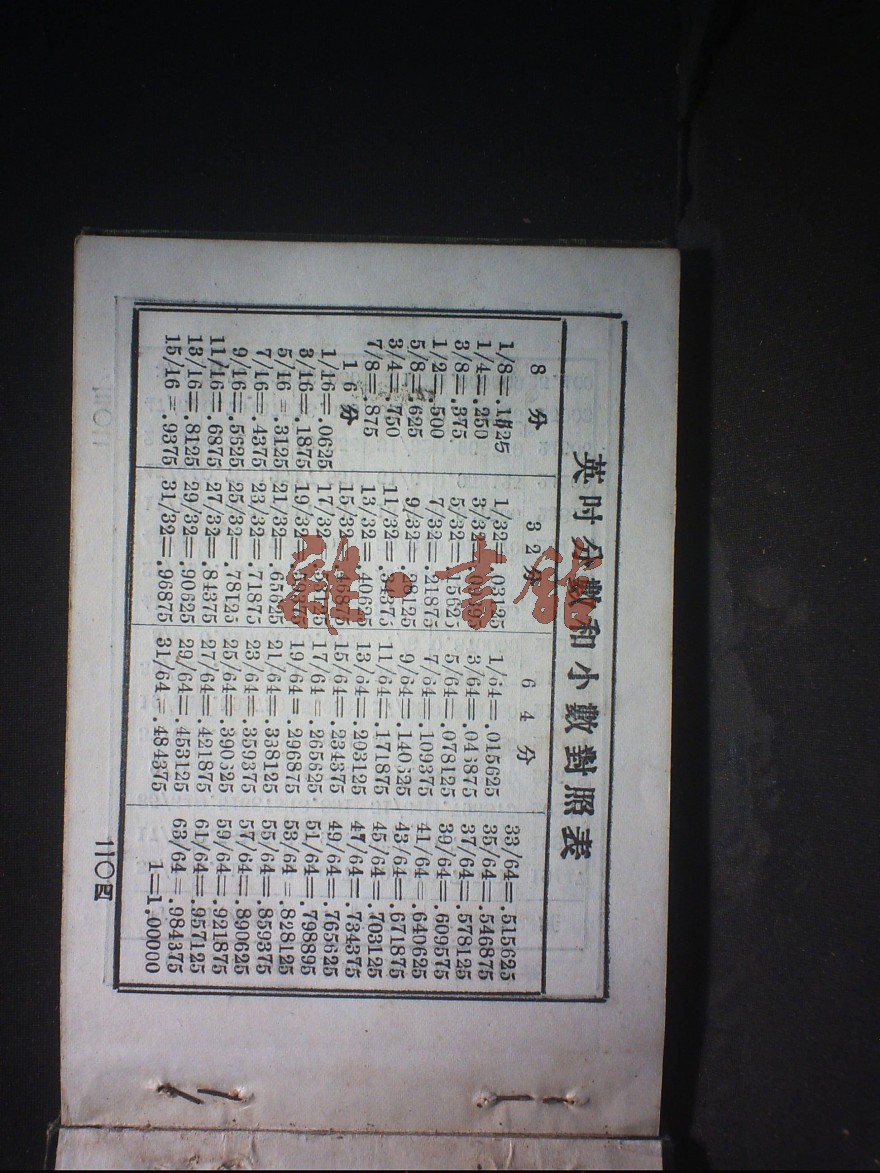 英吋分數和小數對照表
8分
1/8=.1525
1/4=.250
3/8=.375
1/2=.500
5/8=.625
3/4=.750
7/8=.875
16分
1/16=.0625
3/16=.1875
5/16=.3125
7/16=.4375
9/16=.5625
11/16=.6875
13/16=.8125
15/16=.9375
32分
1/32=.03125
3/32=
5/32=.15625
7/32=.21875
9/32=.28125
11/32=.34375
13/32=.40625
15/32=.46875
17/32=.53125
19/32=.59375
21/32=.65625
23/32=.71875
25/32=.78125
27/32=.84375
29/32=.90625
31/32=.96875
64分
1/64=.015625
3/64=.046875
5/64=.078125
7/64=.109375
9/64=.140625
11/64=.171875
13/64=.203125
15/64=.234375
17/64=.265625
19/64=.296875
21/64=.338125
23/64=.359375
25/64=.390325
27/64=.421875
29/64=.453125
31/64=.484375
33/64=.515625
35/64=.546875
37/64=.578125
39/64=.609575
41/64=.640625
43/64=.671875
45/64=.703125
47/64=.734375
49/64=.765625
51/64=.798895
53/64=.828125
55/64=.859375
57/64=.890625
59/64=.921875
61/64=.957125
63/64=.984375
1=1.00000
110四